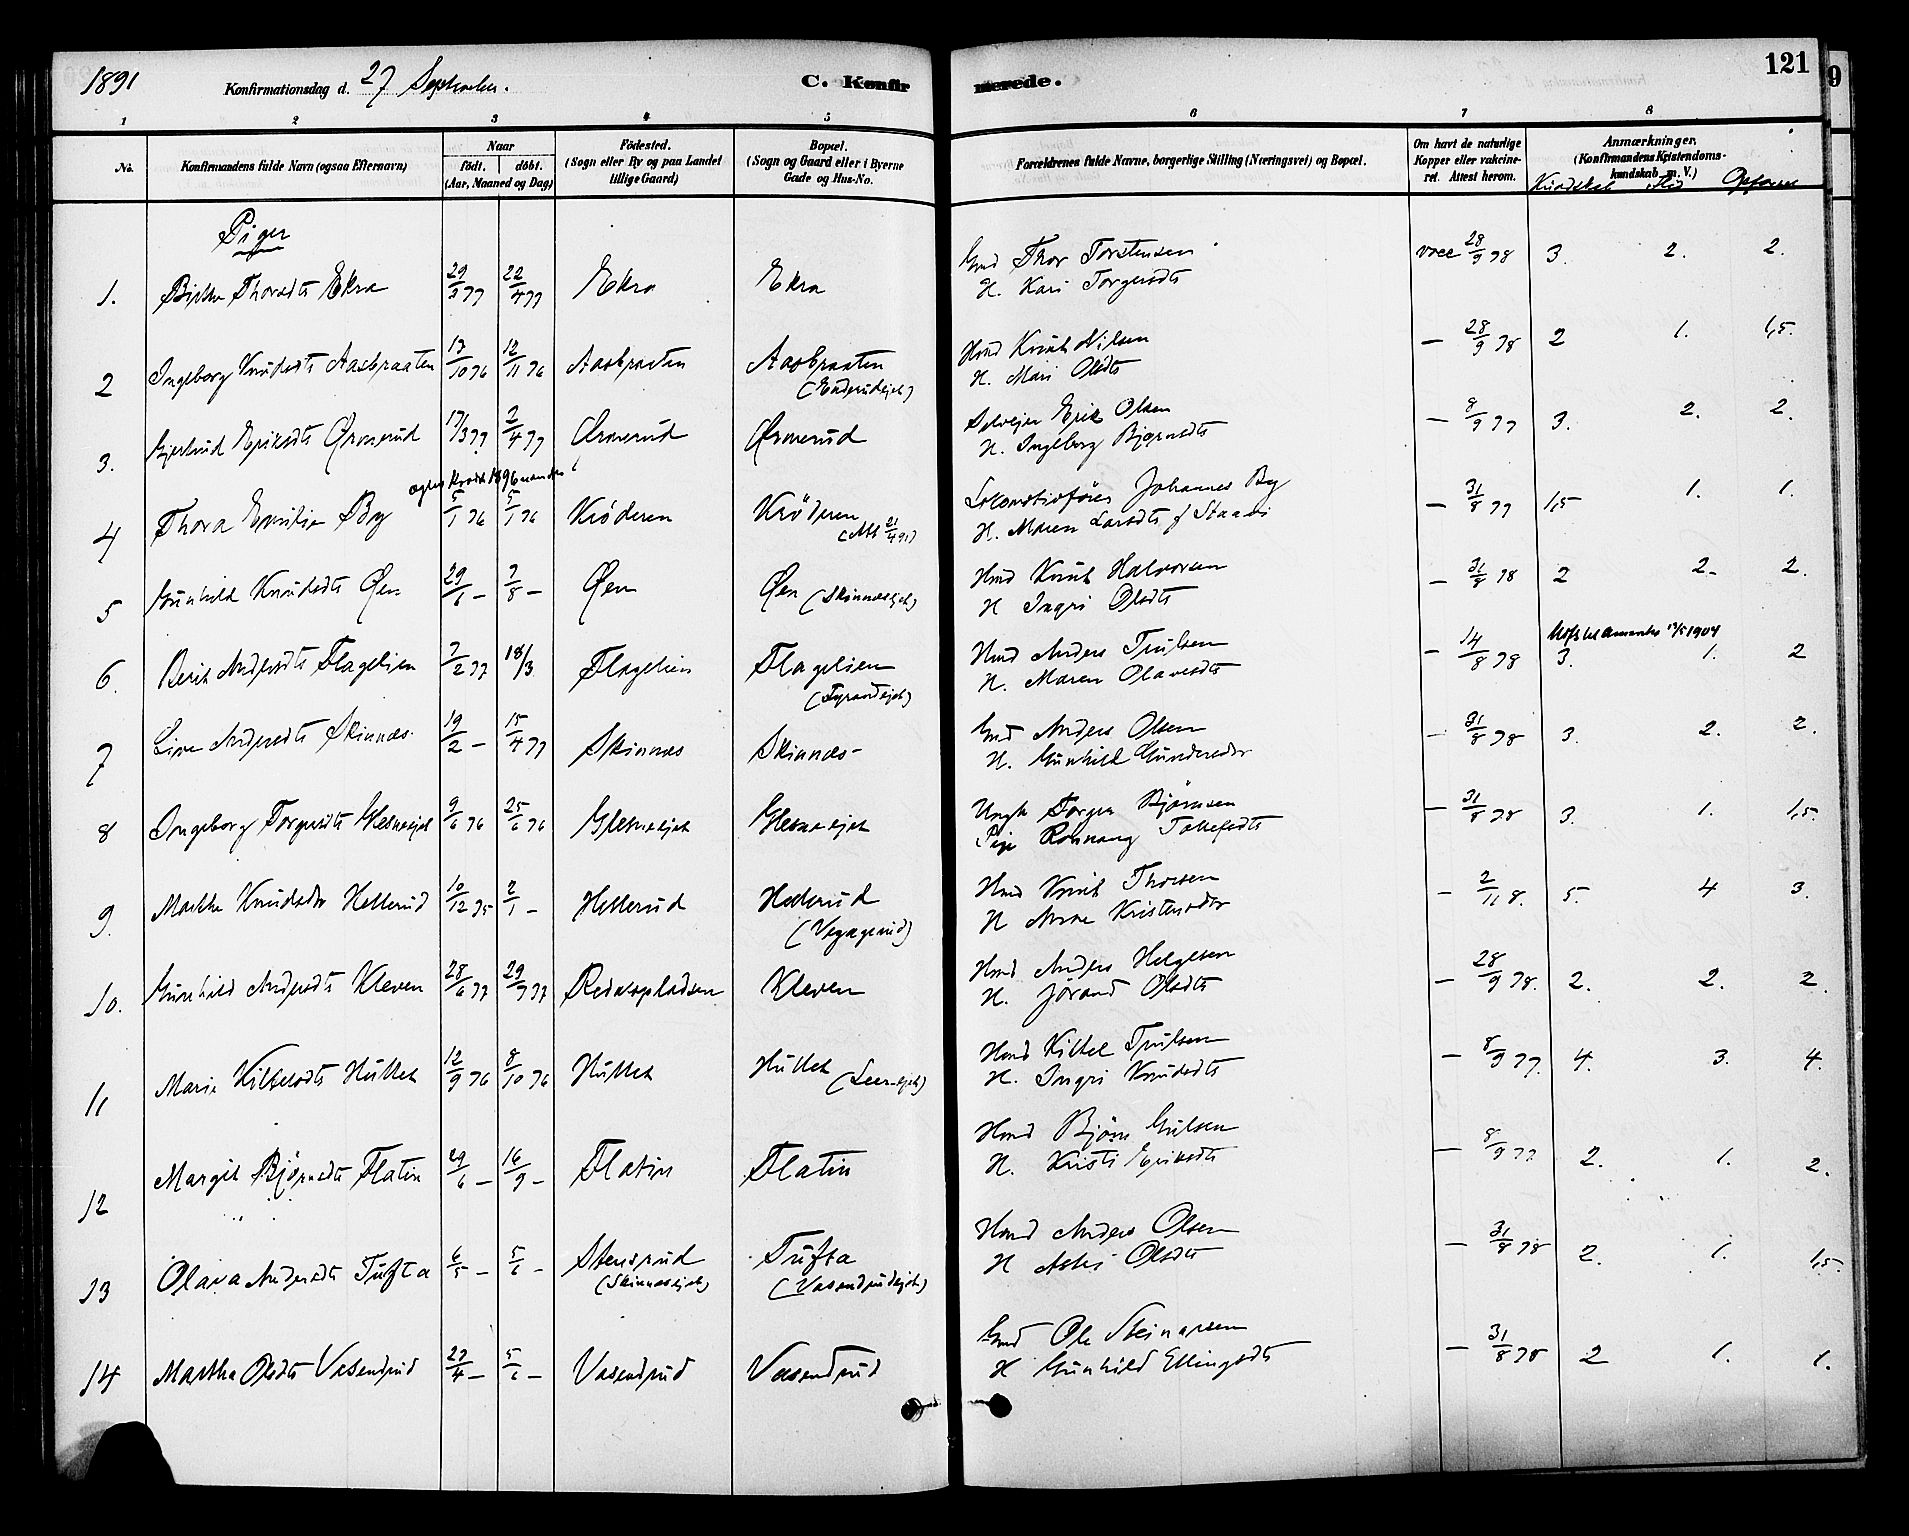 1891 Konfirmationsdag d. 27 September. C. Konfirmerede. 121
1 2 3 4 5 6 7 8
No. Konfirmandens fulde Navn (ogsaa Efternavn) Naar født. døbt. (Aar, Maaned og Dag) Födested. (Sogn eller By og paa Landet tillige Gaard) Bopæl. (Sogn og Gaard eller i Byerne Gade og Hus-No. Forældrenes fulde Navne, borgerlige Stilling (Næringsvei) og Bopæl. Om havt de naturlige Kopper eller vakcineret. Attest herom. Anmærkninger. (Konfirmandens Kristendomskundskab m. V.)
Kundskab Flid Opførsel
Piger
1. Thorsdt Ekra 29/3 77 22/4 77 Ekra Ekra Gmd Thor Torstensen vacc 28/9 78 3. 2. 2.
H. Kari Torgersdt
2 Ingeborg Knudsdt Aasbraaten 17/10 76 12/11 76 Aasbraaten Aasbraaten Hmd Knut Nilsen — 28/9 78 2 1. 1,5.
H. Mari Olsdt
3. Gjertrud Eriksdt Ormerud 17/3 77 2/4 77 Ormerud Ormerud Selvejer Erik Olsen — 8/9 77 3. 2. 2.
H. Ingeborg Bjørnsdt
4 Thora Emilie By 5/1 76 5/1 76 Krøderen Krøderen Lokomotivfører Johannes By — 31/8 77 1,5 1. 1.
(Att 21/4 91) H. Maren Larsdt
5 Gunhild Knudsdt Øen 29/6 — 7/8 — Øen Øen (Skinnesejet) Hmd Knut Halvorsen — 31/8 78 2 2 2.
H Ingri Olsdt
6. Berit Andersdt Flagelien 7/2 77 18/3 Flagelien Flagelien Hmd Anders Trulsen — 14/8 78 3. 1. 2
H. Maren Olavesdt
1904
7 Live Andersdt Skinnes 19/2 — 15/4 77 Skinnes Skinnes Gmd Anders Olsen — 31/8 78 3. 2. 2.
H. Gunhild Gundersdtr
8 Ingeborg Torgersdt Glesneejet 9/6 76 25/6 76 Glesneejet Glesneejet Ungk Torger Bjørnsen — 31/8 78 3. 1. 1,5.
Pige Rønnaug Tollefsdt
9. Marthe Knudsdtr Hellerud 10/12 75 2/1 — Hellerud Hellerud Hmd Knut Thorsen — 2/11 8. 5. 4 3.
H Anne Kristensdtr
10. Gunhild Andersdt Kleven 28/6 77 29/7 77 Kleven Hmd Anders Helgesen — 28/9 78. 2. 2. 2.
H. Jørand Olsdt
11 Marie Kittelsdt Hullet 12/9 76 8/10 76 Hullet Hullet Hmd Kittel Trulsen — 8/9 77. 4. 3. 4.
H. Ingri Knudsdt
12 Margit Bjørnsdt Flatin 29/6 — 16/9 — Flatin Flatin Hmd Bjørn Gulsen — 8/9 77 2. 1. 2.
H. Kristi Eriksdt
13 Olava Andersdt Tufta 6/5 — 5/6 — Stensrud Tufta Hmd Anders Olsen — 31/8 78 2. 1. 1,5.
(Skinnesejet) (Vasendrudejet) H Olsdt
14 Martha Olsdt Vasendrud 27/4 — 5/6 — Vasendrud Vasendrud Gmd Ole Steinarsen — 31/8 78 2 1. 1.
H Gunhild Ellingsdt